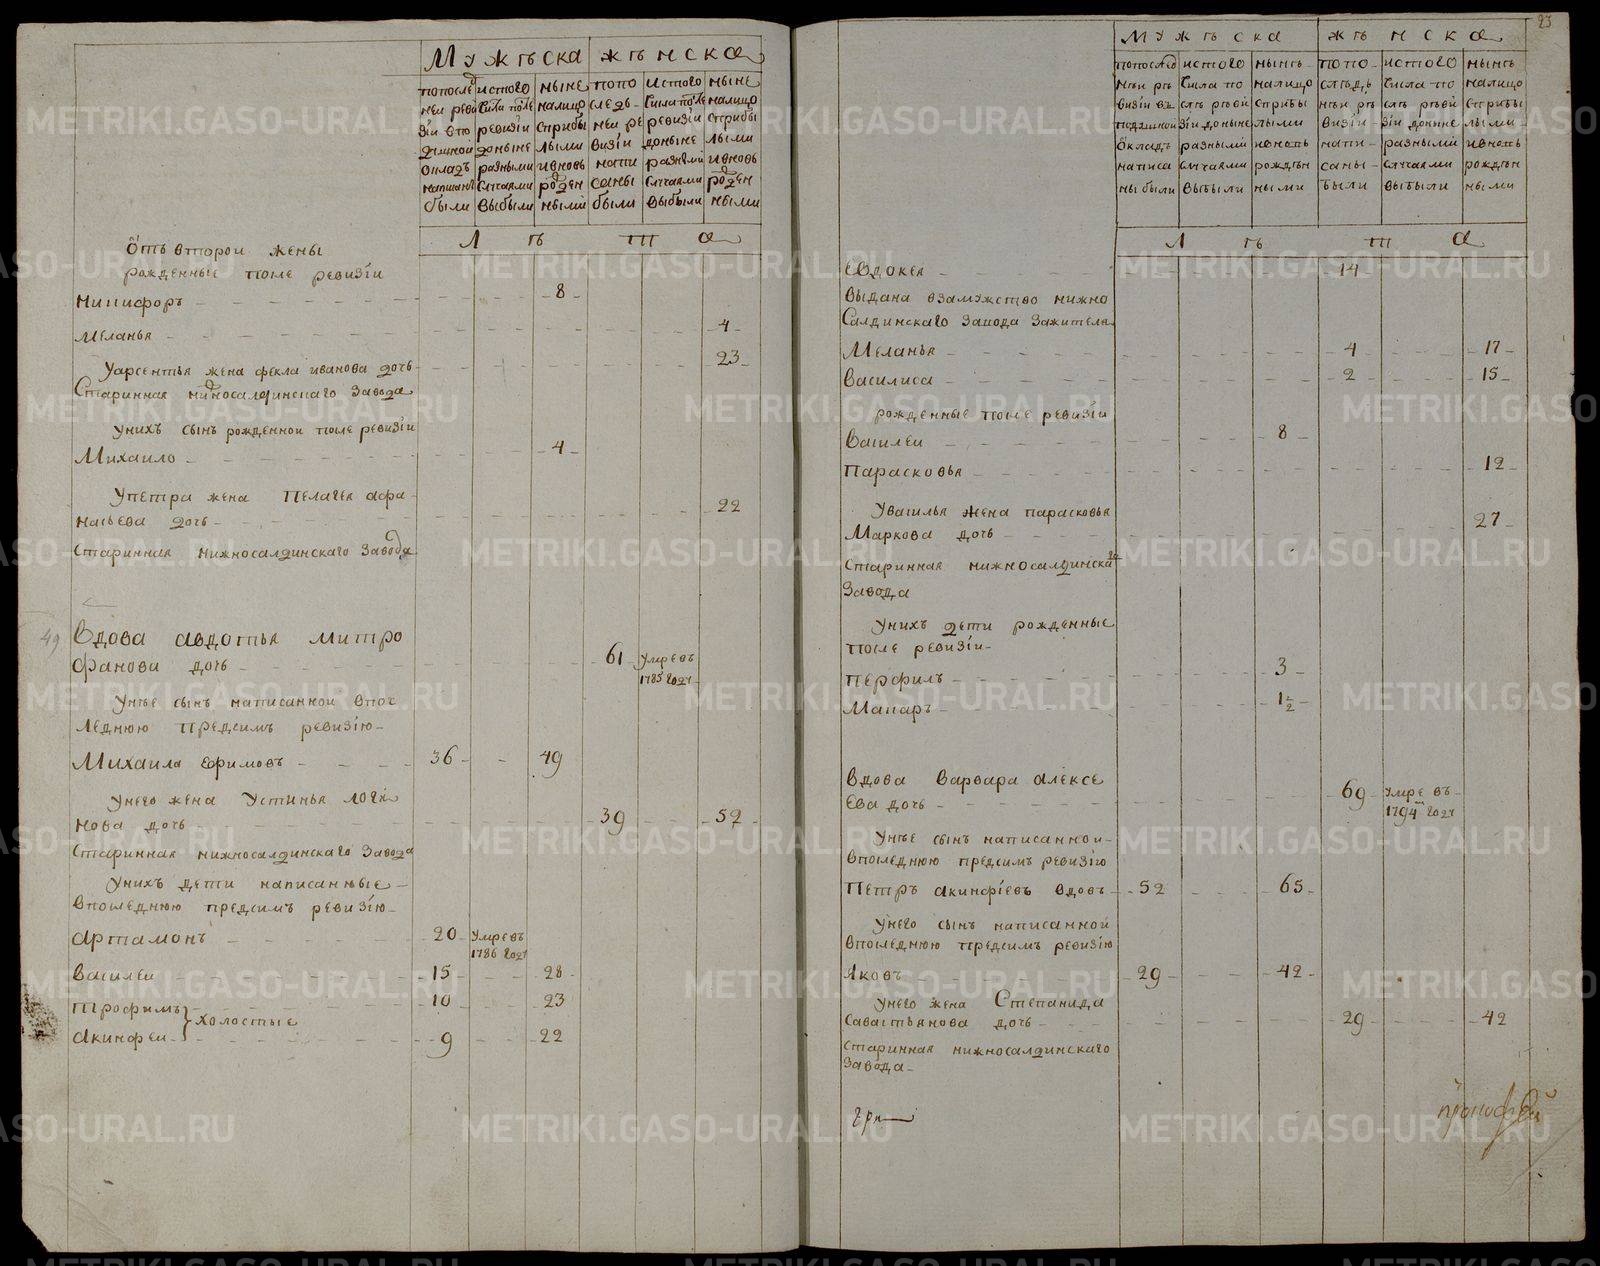 Мужеска женска
попослед ней реви зіи впо душной окладъ написаны были
истого числа после ревизіи доныне разными случаями выбыли
ныне налицо сприбы лыми ивновь рожден ными
попо следь ней ре визіи напи саны были
истого числа после ревизіи доныне разными случаями выбыли
ныне налицо сприбы лыми ивновь рожден ными
Л ѣ т а
Отъ второи жены
рожденные после ревизіи
Никифоръ 8
Меланья 4
Уарсентья жена фекла иванова дочь 23
Старинная нижносалдинскаго Завода
Унихъ сынъ рожденнои после ревизіи
Михаило 4
Упетра жена Пелагея афа-
насьева дочь 22
Старинная нижносалдинскаго Завода
49 Вдова авдотья митро
фанова дочь 61 Умре въ 1785 году
Унѣе сынъ написаннои впос
леднюю предсимъ ревизію
Михаила ефимовъ 36 49
Унего жена Устинья логи
нова дочь 39 52
Старинная нижносалдинскаго Завода
Унихъ дети написанные
впоследнюю предсимъ ревизію
артамонъ 20 Умре въ 1786 году
василеи 15 28
трофимъ 10 23
холостые
акинфеи 9 22
23
мужеска женска
попослед нѣи ре визіи въ подушной окладъ написа ны были
истого числа по слѣ ревіи зіи доныне разными случаями выбыли
нынѣ налицо сприбы лыми ивновь рожден ными
попо слѣдь нѣи ре визіи напи саны были
истого числа по слѣ ревіи зіи доныне разными случаями выбыли
нынѣ налицо сприбы лыми ивновь рожден ными
Л ѣ т а
Евдокея 14
выдана взамужство нижно
Салдинскаго Завода Зажителя
Меланья 4 17
василиса 2 15
рожденные после ревизіи
василеи 8
парасковья 12
Увасилья жена парасковья
Маркова дочь 27
Старинная нижносалдинскаго
Завода
Унихъ дети рожденные
после ревизіи
перфилъ 3
Макаръ 1 1/2
Вдова варвара алексе
ева дочь 69 Умре въ 1794м году
Унѣе сынъ написаннои
впоследнюю предсимъ ревизію
Петръ акинфіевъ вдовъ 52 65
Унего сынъ написанной
впоследнюю предсимъ ревизію
Яковъ 29 42
Унего жена Степанида
Савастьянова дочь 29 42
старинная нижносалдинскаго
Завода
METRIKI.GASO-URAL.RU